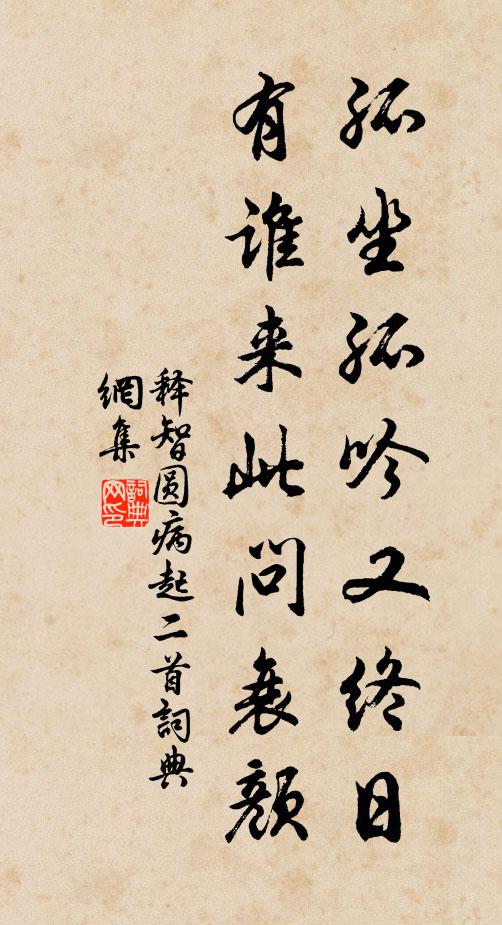 孤坐孤吟又终日
有谁来此问衰颜
释智圆病起二首詞典
網集
詞典
网印